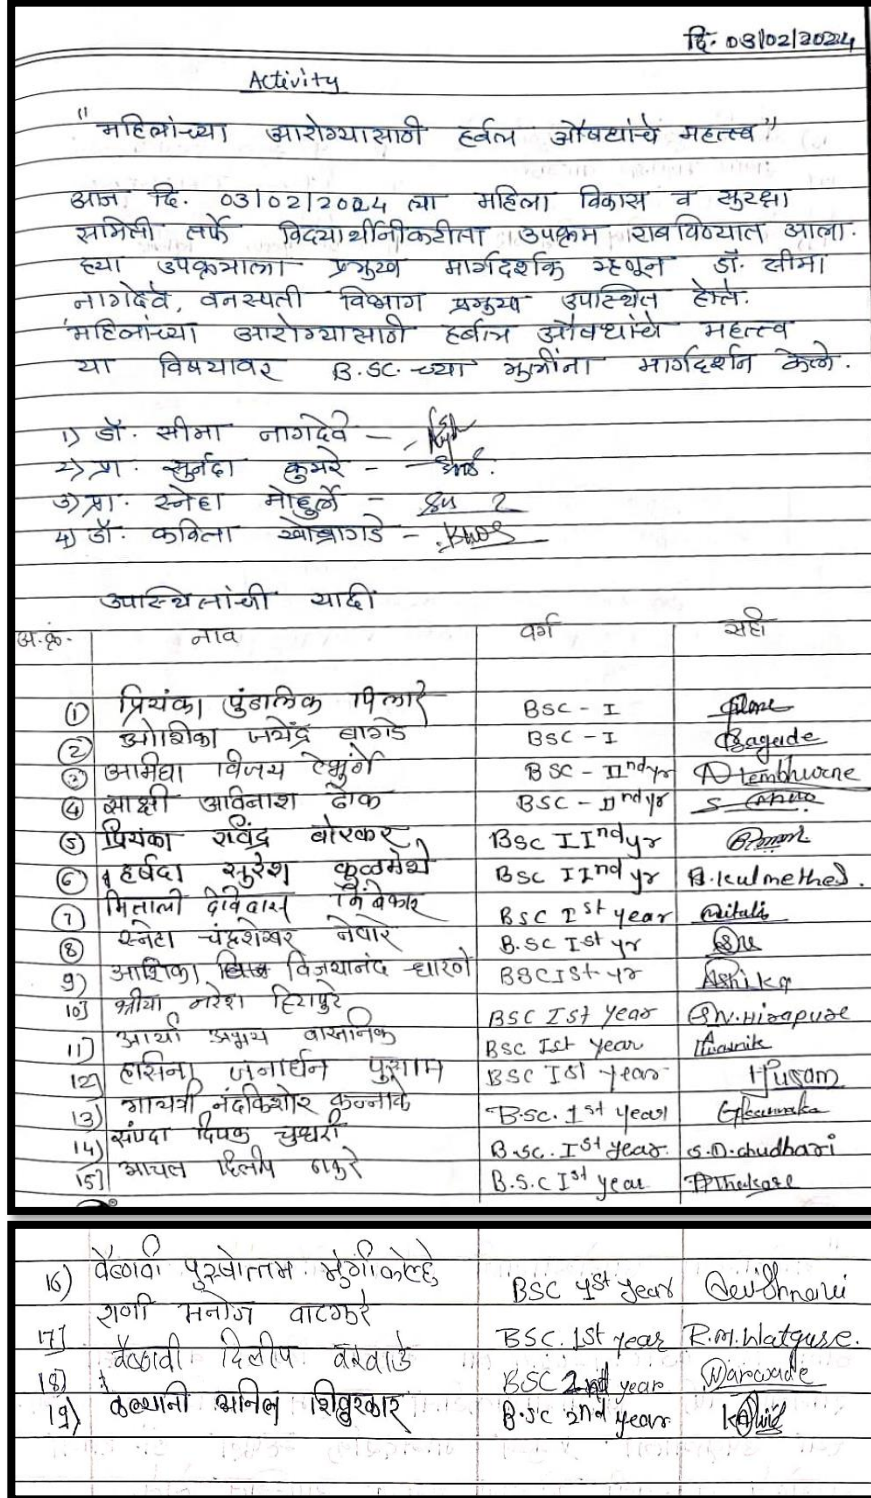 दि. 03/02/2024
Activity
"महिलांच्या आरोग्यासाठी हर्बल औषधांचे महत्त्व"
आज दि. 03/02/2024 ला महिला विकास व सुरक्षा
समिती तर्फे विद्यार्थीनीकरीता उपक्रम राबविण्यात आला.
ह्या उपक्रमाला प्रमुख मार्गदर्शक म्हणून डॉ. सीमा
नागदेवे, वनस्पती विभाग प्रमुख उपस्थित होते.
'महिलांच्या आरोग्यासाठी हर्बल औषधांचे महत्त्व
या विषयावर B.SC. च्या मुलींना मार्गदर्शन केले.
1) डॉ. सीमा नागदेवे -
2) प्रा. सुनंदा कुमरे -
3) प्रा. स्नेहा मोहुर्ले -
4) डॉ. कविता खोब्रागडे -
उपस्थितांची यादी
अ.क्र. नाव वर्ग सही
1 प्रियंका पुंडालिक पिलारे BSC - I
2 ओशिका जयेंद्र बागडे BSC - I Bagade
3 आमेघा विजय टेंभुर्णे BSC - IInd yr Atembhurne
4 साक्षी अविनाश ढोक BSC - IInd yr
5 प्रियंका रविंद्र बोरकर BSC IInd yr
6 हर्षदा सुरेश कुळमेथे BSC IInd yr H.Kulmethe
7 मिताली देविदास BSC Ist year Mitali
8 स्नेहा चंद्रशेखर नेवारे B.SC Ist yr
9) आशिका विजयानंद धारणे BSC Ist yr Ashika
10) श्रीया नरेश हिरापुरे BSC Ist Year Sh.N.Hirapure
11) आर्या अभय वासनिक BSC Ist Year
12) हसिना जनार्धन पुसाम BSC Ist Year Hpusam
13) गायत्री नंदकिशोर कन्नाके B.SC. 1st year
14) संपदा दिपक चुधरी B.SC. Ist Year. S.D.chudhari
15) आचल दिलीप ठाकरे B.S.C Ist year AThakare
16) वैष्णवी पुरुषोत्तम मुंगीकोल्हे BSC 1st Year
17) राणी मनोज वाटगुरे BSC. 1st year R.M.Watgure.
18) वैष्णवी दिलीप वरवाडे BSC 2nd year Warwade
19) कल्यानी अनिल शिवुरकार B.SC 2nd year